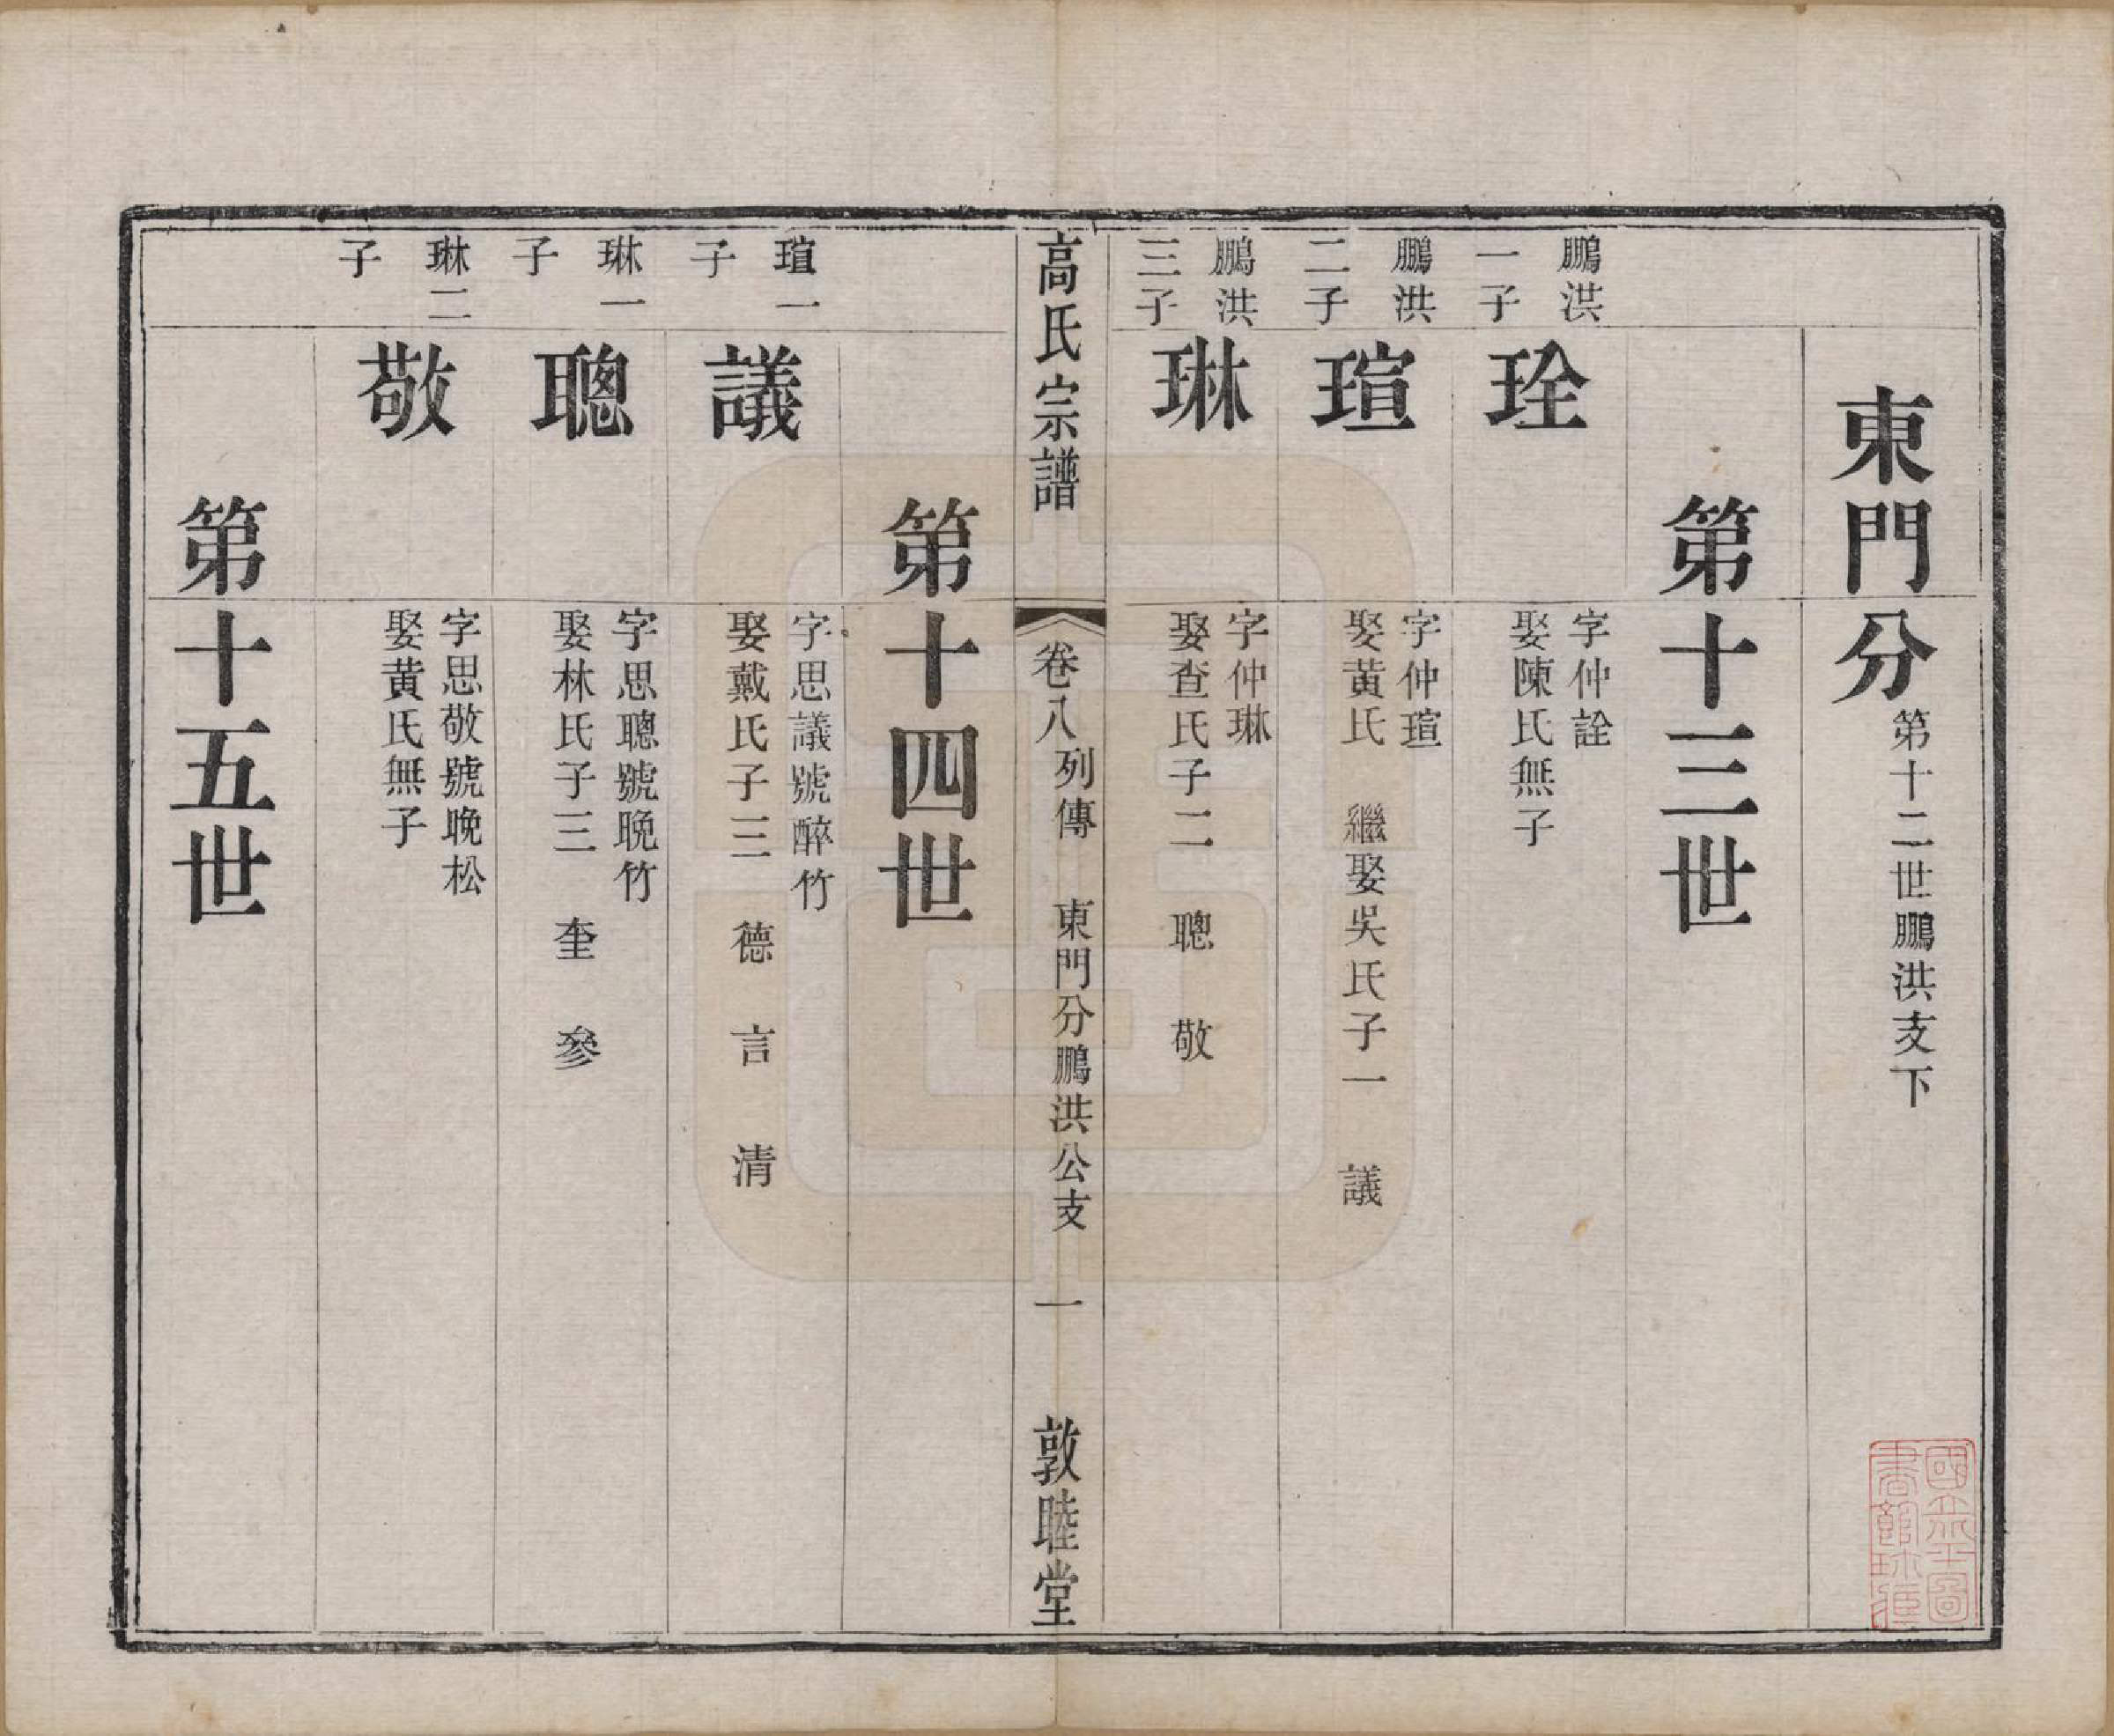 東門分
第十二世鵬洪支下
第十三世
鵬洪
一子
琻
字仲詮
娶陳氏無子
鵬洪
二子
瑄
字仲瑄
娶黄氏　繼娶吳氏子一　議
鵬洪
三子
琳
字仲琳
娶查氏子二　聰　敬
高氏宗譜
卷八
列傳　東門分鵬洪公支
一
敦睦堂
第十四世
瑄一
子
議
字思議號醉竹
娶戴氏子三　德　言　清
琳一
子
聰
字思聰號晚竹
娶林氏子三　奎　參
琳二
子
敬
字思敬號晚松
娶黄氏無子
第十五世
國立北
書館珍藏